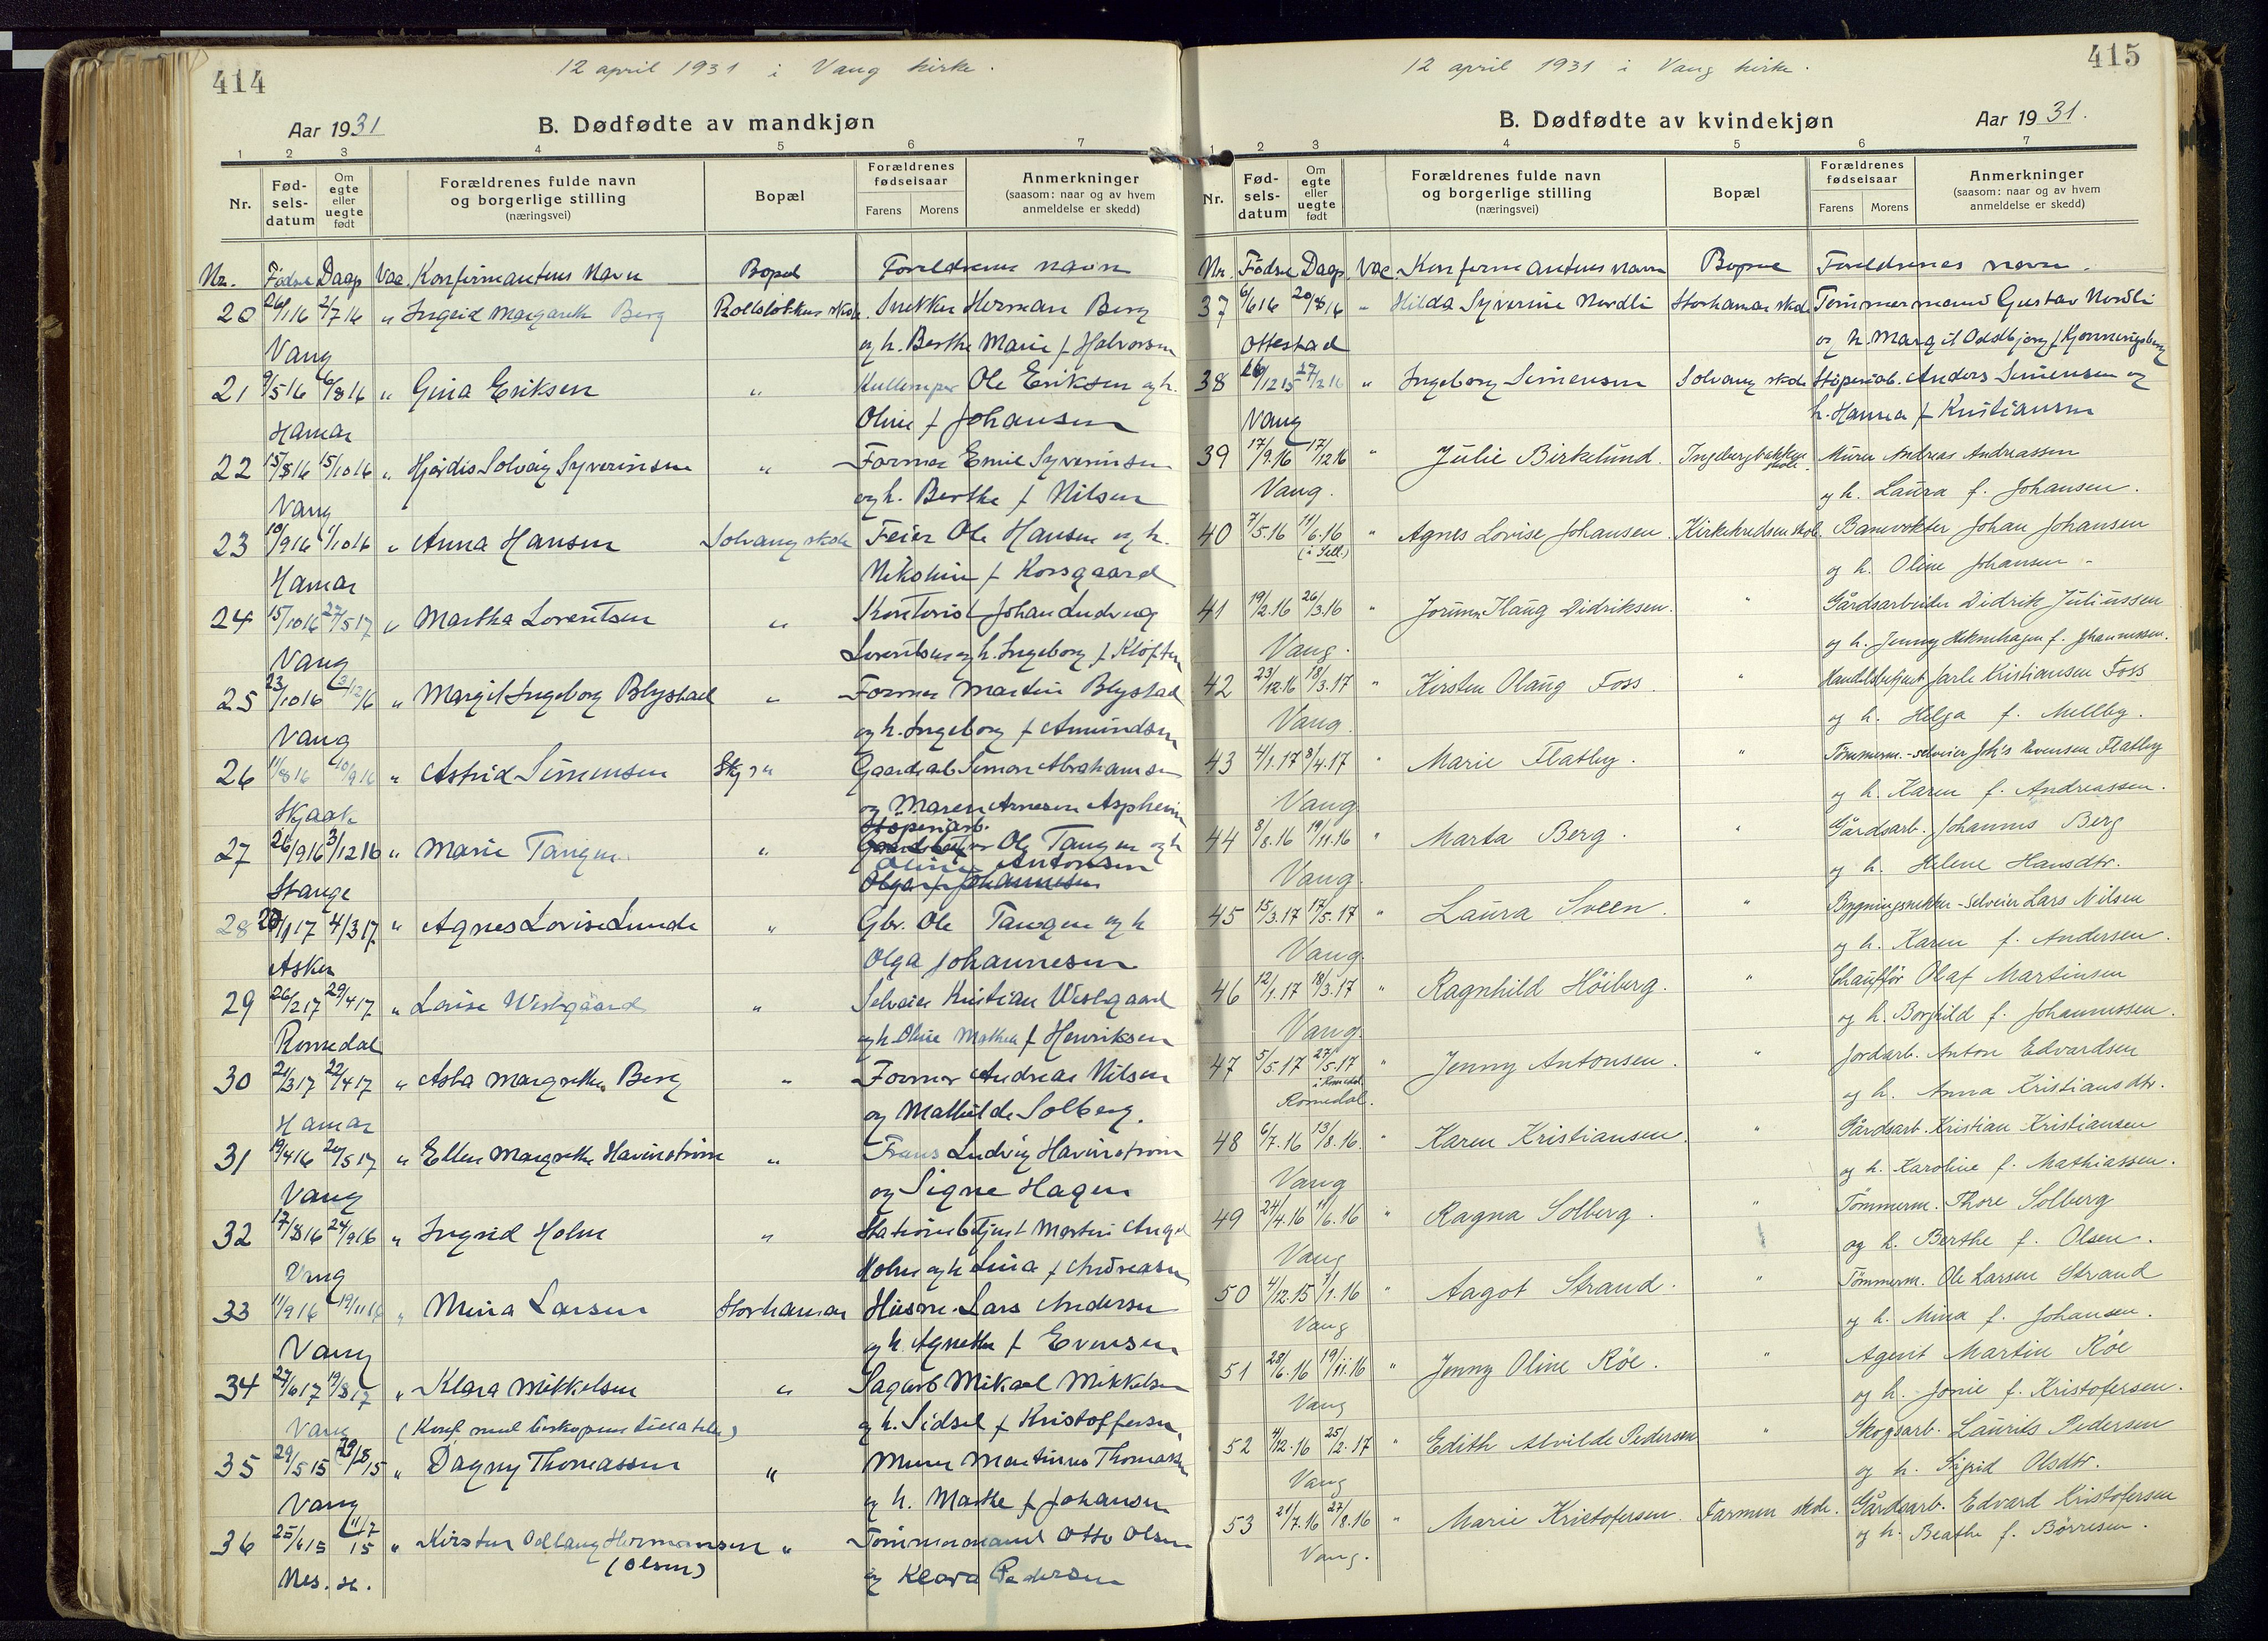 414
12 april 1931 i Vang kirke.
Aar 1931
B. Dødfødte av mandkjøn
1 2 3 4 5 6 7
Nr.
Fød-
sels-
datum
Om
egte
eller
uegte
født
Forældrenes fulde navn
og borgerlige stilling
(næringsvei)
Bopæl
Forældrenes
fødselsaar
Farens Morens
Anmerkninger
(saasom: naar og av hvem
anmeldelse er skedd)
Nr. Fødsel Daap Vac Konfirmantens Navn Bopel Foreldrenes navn
20 26/1 16 2/7 16 " Ingrid Margareth Berg Rollsløkken skole. Snekker Herman Berg
Vang og h. Berthe Marie f Halvorsen
21 9/5 16 6/8 16 " Gina Eriksen " Ole Eriksen og h.
Hamar Oline f Johansen
22 15/8 16 15/10 16 " Hjørdis Solveig Syverinsen " Former Emil Syverinsen
Vang og h. Berthe f Nilsen
23 10/9 16 1/10 16 " Anna Hansen Solvang skole Feier Ole Hansen og h.
Hamar Nikoline f Korsgaard
24 15/10 16 27/5 17 " Martha Lorentsen " Kontorist Johan Ludvig
Vang Lorentsen og h. Ingeborg f Kløften
25 23/10 16 3/12 16 " Margit Ingeborg Blystad " Former Martin Blystad
Vang og h. Ingeborg f Amundsen
26 11/8 16 10/9 16 " Astrid Simensen " Gaardsarb Simon Abrahamsen
Skjaak og Maren Arnesen Aspheim
27 26/9 16 3/12 16 " Marie Tangen " Støperiarb. Ole Tangen og h
Oline Antonsen
Stange Olga f Johannesen
28 /1 17 4/3 17 " Agnes Lovise Lunde " Gbr. Ole Tangen og h
Asker Olga Johannesen
29 26/2 17 29/4 17 " Louise Westgaard " Selveier Kristian Westgaard
Romedal og h Oline Mathea f Henriksen
30 21/3 17 22/4 17 " Asta Margrethe Berg " Former Andreas Nilsen
Hamar og Mathilde Solberg.
31 19/4 16 20/5 17 " Ellen Margrethe Havinstrøm " Frans Ludvig Havinstrøm
Vang og Signe Hagen
32 17/8 16 24/9 16 " Ingrid Holm " Stationsbetjent Martin August
Vang Holm og h Lina f Andreasen
33 11/9 16 19/11 16 " Mina Larsen Storhamar Husm. Lars Andersen
Vang og h. Agnethe f Evensen
34 27/6 17 19/8 17 " Klara Mikkelsen " Sagarb Mikael Mikkelsen
Vang (Konf med biskopens tillatelse) og h. Sidsel f Kristoffersen,
35 29/5 15 29/8 15 " Dagny Thomassen " Murer Martinius Thomassen
Vang og h. Marthe f Johansen
36 25/6 15 11/7 15 " Kirsten Odlaug Hermansen " Tømmermand Otto Olsen
Nes. H. (Olsen) og Klara Pedersen
415
12 april 1931 i Vang kirke.
B. Dødfødte av kvindekjøn
Aar 1931.
1 2 3 4 5 6 7
Nr.
Fød-
sels-
datum
Om
egte
eller
uegte
født
Forældrenes fulde navn
og borgerlige stilling
(næringsvei)
Bopæl
Forældrenes
fødselsaar
Farens Morens
Anmerkninger
(saasom: naar og av hvem
anmeldelse er skedd)
Nr. Fødsel Daap Vac Konfirmantens navn Bopæl Foreldrenes navn.
37 6/6 16 20/8 16 " Hilda Syverine Nordli Storhamar skole Tømmermand Gustav Nordli
Ottestad og h. Margit Oddbjørg f Kjonningsberg
38 26/12 15 27/2 16 " Ingeborg Simensen Solvang skole Støperiarb. Anders Simensen og
Vang h. Hanna f Kristiansen
39 17/9.16 17/12 16 " Julie Birkelund. Ingebergbakken skole. Murer Andreas Andreassen
Vang. og h. Laura f. Johansen.
40 7/5.16 11/6.16 " Agnes Lovise Johansen. Kirkekredsen skole. Banevokter Johan Johansen
(i Sell.) og h. Oline Johansen
41 19/2.16 26/3.16 " Jorunn Haug Didriksen. " Gårdsarbeider Didrik Juliussen
Vang. og h. Jenny Heknehagen f. Johannessen.
42 23/12.16 18/3.17 " Kirsten Olaug Foss. " Handelsbetjent Jarle Kristiansen Foss
Vang. og h. Helga f. Mellby.
43 4/1.17 8/4.17 " Marie Flatby. " Tømmerm.-selveier Joh's Evensen Flatby
Vang. og h. Karen f. Andreassen.
44 8/8.16 19/11.16 " Marta Berg. " Gårdsarb. Johannes Berg
Vang. og h. Helene Hansdtr.
45 15/3.17 17/5.17 " Laura Sveen. " Bygningssnekker-selveier Lars Nilsen
Vang. og h. Karen f. Andersen.
46 12/1.17 18/3.17 " Ragnhild Höiberg. " Chaufför Olaf Martinsen
Vang. og h. Borghild f. Johannessen.
47 5/5.17 27/5.17 " Jenny Antonsen. " Jordarb. Anton Edvardsen
i Romedal.
Romedal. og h. Anna Kristiansdtr.
48 6/7.16 13/8.16. " Karen Kristiansen. " Gårdsarb. Kristian Kristiansen
Vang og h. Karoline f. Mathiassen.
49 24/4.16 11/6.16 " Ragna Solberg. " Tömmerm. Thore Solberg
Vang og h. Berthe f. Olsen.
50 4/12.15 7/1.16 " Aagot Strand. " Tömmerm. Ole Larsen Strand
Vang og h. Mina f. Johansen.
51 28/6.16 19/11.16 " Jenny Oline Röe. " Agent Martin Röe
Vang og h. Jonie f. Kristofersen.
52 4/12.16 25/2.17 " Edith Alvilde Pedersen " Skogsarb. Laurits Pedersen
Vang og h. Sigrid Olsdtr.
53 21/7.16 27/8.16 " Marie Kristofersen. Farmen skole. Gårdsarb. Edvard Kristofersen
Vang. og h. Beathe f. Børresen.